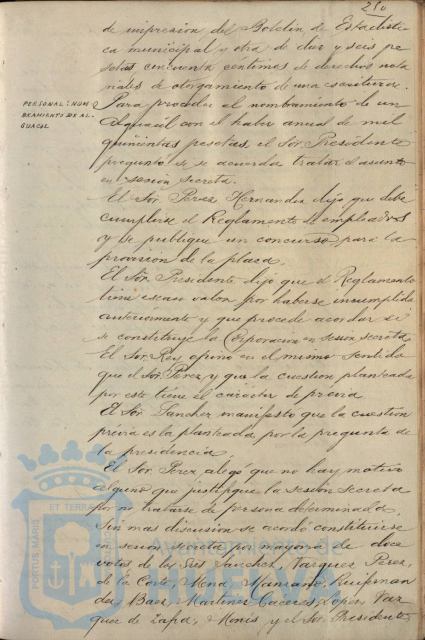 210
de impresion del Boletin de Estadisti-
ca municipal y otra de diez y seis pe-
setas cincuenta céntimos de derechos nota
riales de otorgamiento de una escritura.
PERSONAL: NOM
BRAMIENTO DE AL-
GUACIL
Para proceder al nombramiento de un
Alguacil con el haber anual de mil
quinientas pesetas el Sor. Presidente
preguntó si se acuerda tratar el asunto
en sesión secreta.
El Sor. Perez Hernandez dijo que debe
cumplirse el Reglamento de empleados
y se publique un concurso para la
provision de la plaza.
El Sor. Presidente dijo que el Reglamento
tiene escaso valor por haberse incumplido
anteriormente y que procede acordar si
se constituye la Corporacion en sesion secreta
El Sor. Rey opinó en el mismo sentido
que el Sor. Perez y que la cuestion planteada
por este tiene el carácter de previa.
El Sor. Sanchez manifestó que la cuestion
prévia es la planteada por la pregunta de
la presidencia.
El Sor. Perez alegó que no hay motivo
alguno que justifique la sesión secreta
por no tratarse de persona determinada.
Sin mas discusion se acordó constituirse
en sesion secreta por mayoria de doce
votos de los Sres Sanchez, Vazquez Perez,
de la Corte, Mena, Manzano,
Baez, Martinez Caceres, Lopez, Vaz
quez de Zafra, Monis, y el Sor. Presidente
PORTUS MARIS ET TERRAE CUSTODIA
Ayuntamiento de
HUELVA